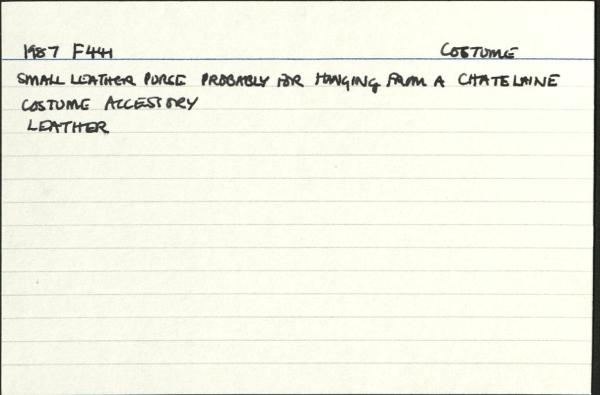 1987 F441 COSTUME
SMALL LEATHER PURSE PROBABLY FOR HANGING FROM A CHATELAINE
COSTUME ACCESSORY
LEATHER